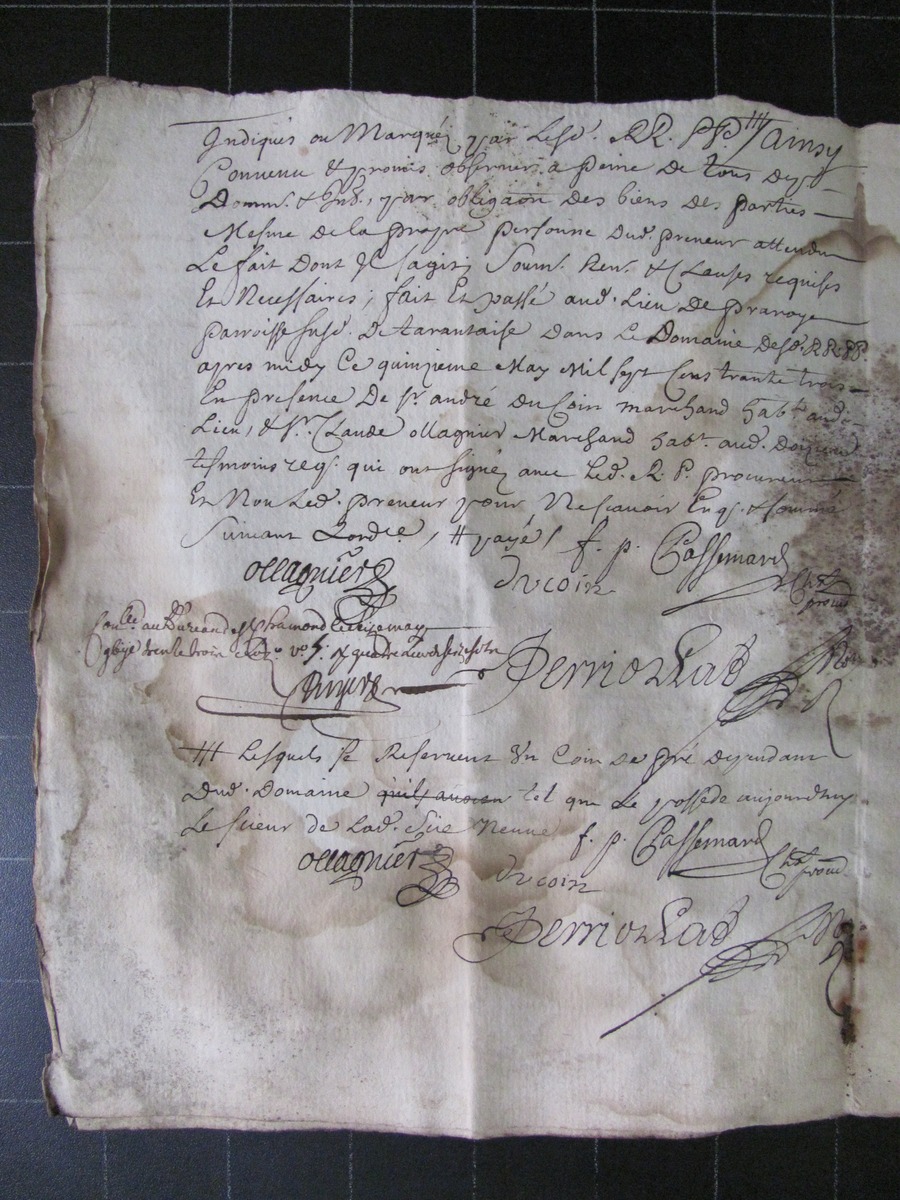 Indiqués ou Marqués par lesd. RR. PP. ⫲ / ainsy
Convenu & promis observer à peine de tous dep.
Domm. & Int., par obligaon des biens des parties
Mesme de la propre personne dud. preneur attendu
Le fait Dont Il sagit; Soum. Ren. & Clauses requises
Et Necessaires; fait Et passé aud. Lieu de
parroisse susd. De tarantaise dans le Domaine desd. RR. PP.
apres midy Ce quinzieme May Mil sept Cens trante trois
En presence De Sr. andré du Coin marchand habt. aud.
Lieu, & Sr. Claude ollagnier Marchand habt. aud.
tesmoins reqs. qui ont signé, avec led. R. P. procureur
Et Non Led. preneur pour Ne scavoir Enq. & sommé
Suivant Lordce / # payé / f. p. Passemard
ollagnier ducoin Chx. procu.
Conlé. au Bureau de St Chamond le
trente trois
Perrio
⫲ Lesquels se Reservent Un Coin de pré dependant
Dud. Domaine quil avoien tel que Le possede aujourdhuy
Le sieur de Lad. Neuve f. p. Passemard
ollagnier ducoin Chx. procu.
Perrio